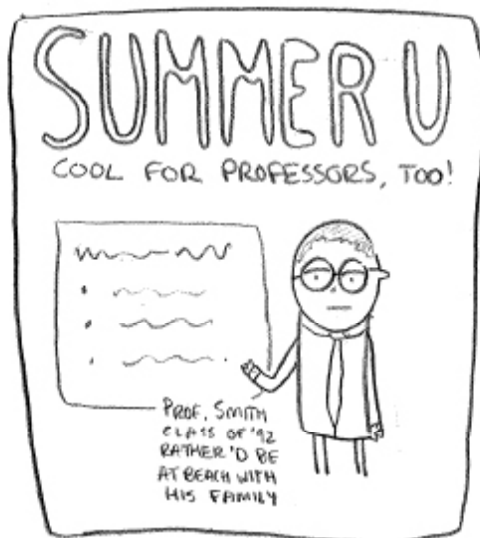 SUMMER U
COOL FOR PROFESSORS, TOO!
PROF. SMITH
CLASS OF '92
RATHER 'D BE
AT BEACH WITH
HIS FAMILY